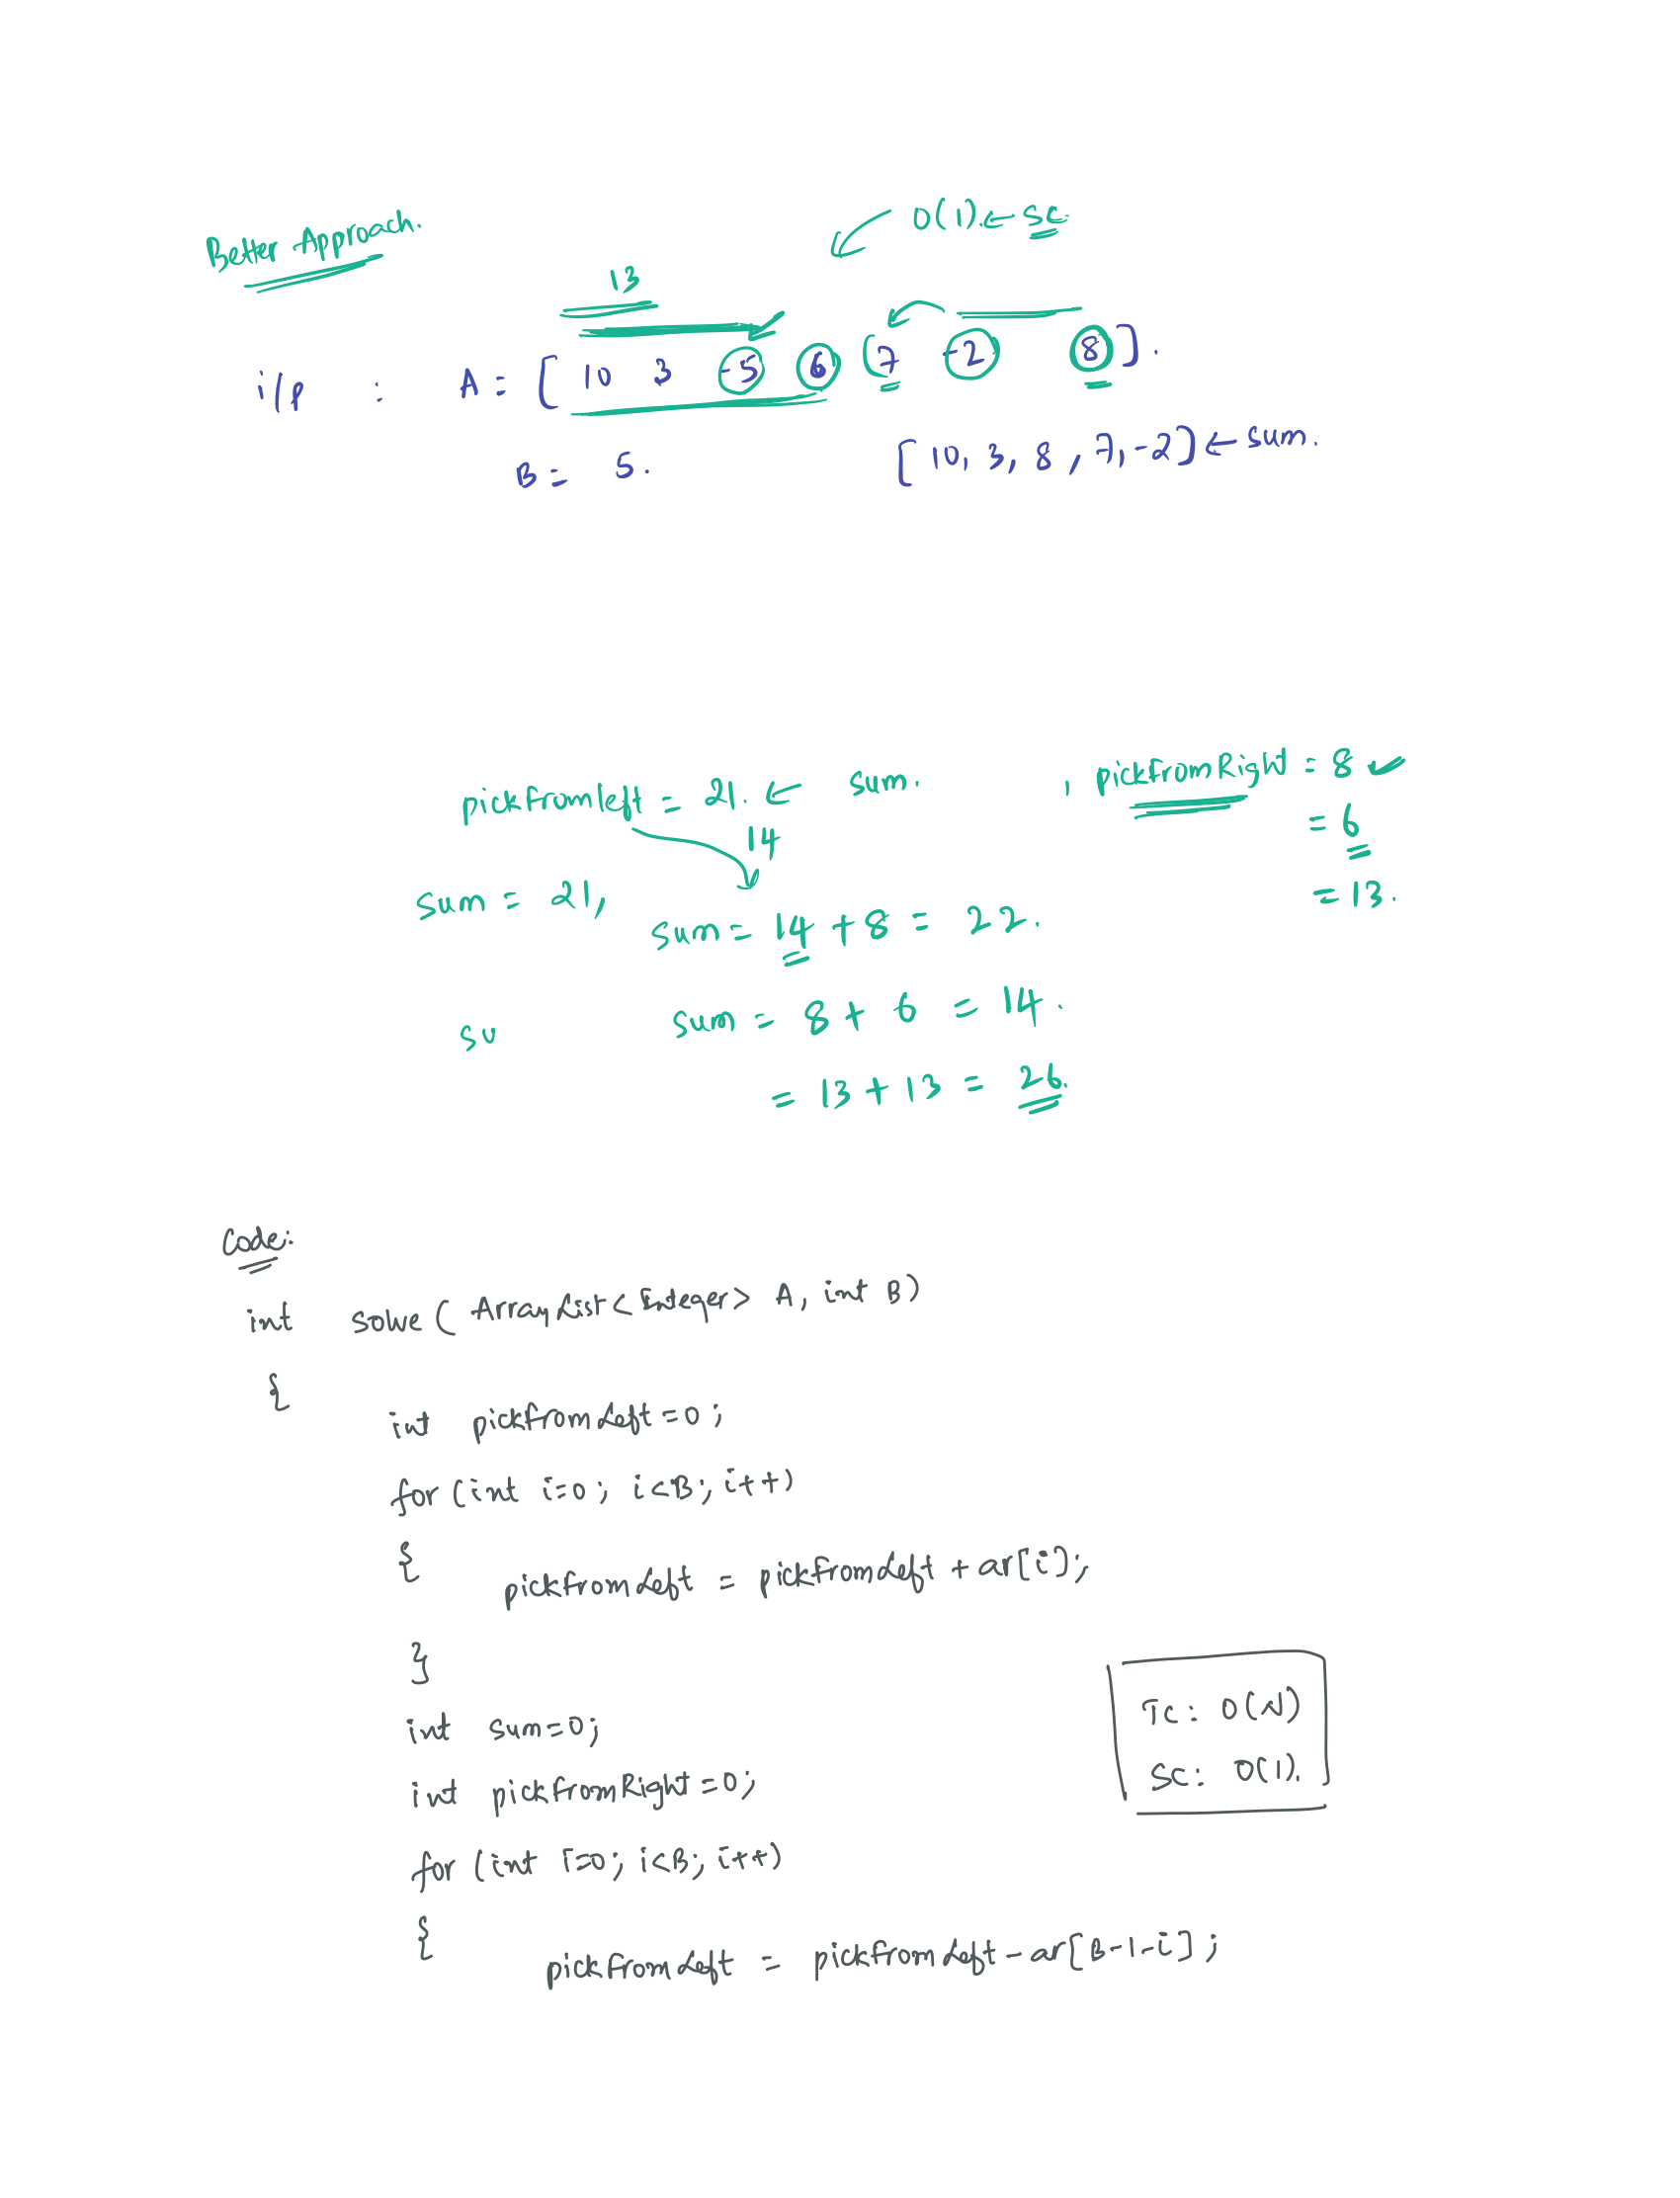 Better Approach.
O(1). ← SC.
13
i/p : A = [ 10 3 -5 6 (7 -2 8 ].
B = 5.
[ 10, 3, 8 , 7, -2 ] ← sum.
pickfromleft = 21. ← sum.
, pickfromRight = 8 ✓
14
= 6
sum = 21,
= 13.
sum = 14 + 8 = 22.
su
sum = 8 + 6 = 14.
= 13 + 13 = 26.
Code:
int solve ( ArrayList < Integer > A, int B )
{
int pickfromLeft = 0 ;
for (int i=0 ; i<B; i++)
{
pickfromLeft = pickfromLeft + ar[i];
}
int sum=0;
int pickfromRight=0;
TC: O(N)
SC: O(1).
for (int i=0; i<B; i++)
{
pickfromLeft = pickfromLeft - ar[B-1-i] ;